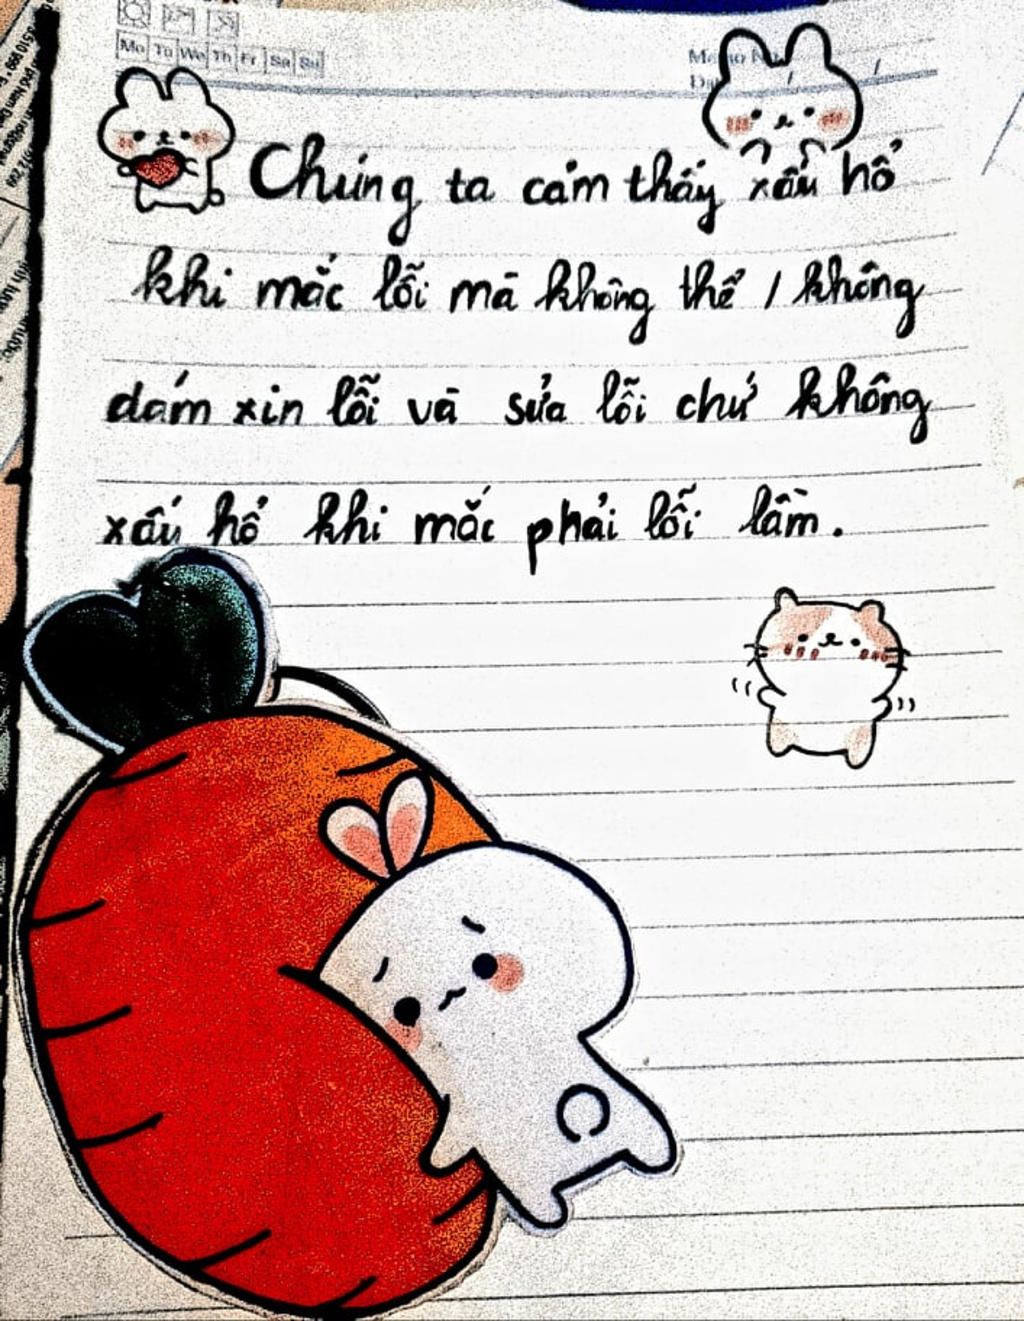 Mo Tu We Th Fr Sa Su
Chúng ta cảm thấy xấu hổ
khi mắc lỗi mà không thể / không
dám xin lỗi và sửa lỗi chứ không
xấu hổ khi mắc phải lỗi lầm.